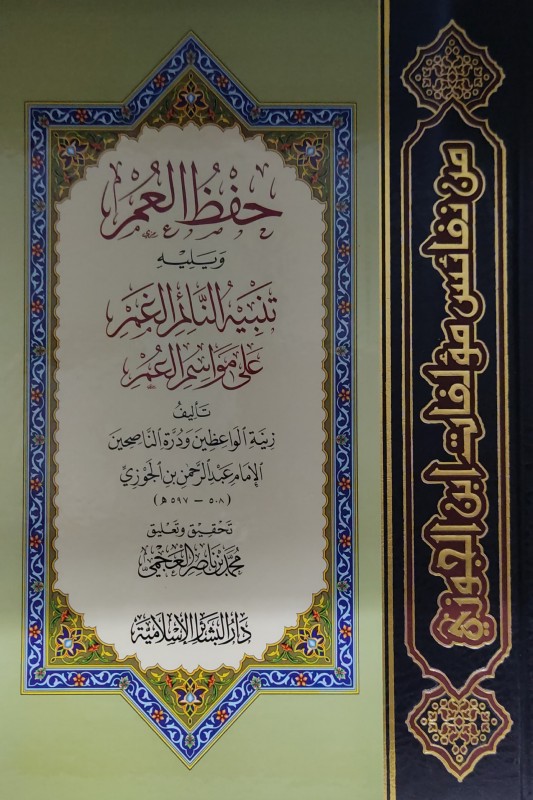 حفظ العمر
ويليه
تنبيه النائم الغمر
على مواسم العمر
تأليف
زينة الواعظين ودرة الناصحين
الإمام عبد الرحمن بن الجوزي
(٥٠٨ - ٥٩٧ هـ)
تحقيق وتعليق
محمد بن ناصر العجمي
دار البشائر الإسلامية
من نفائس مؤلفات ابن الجوزي